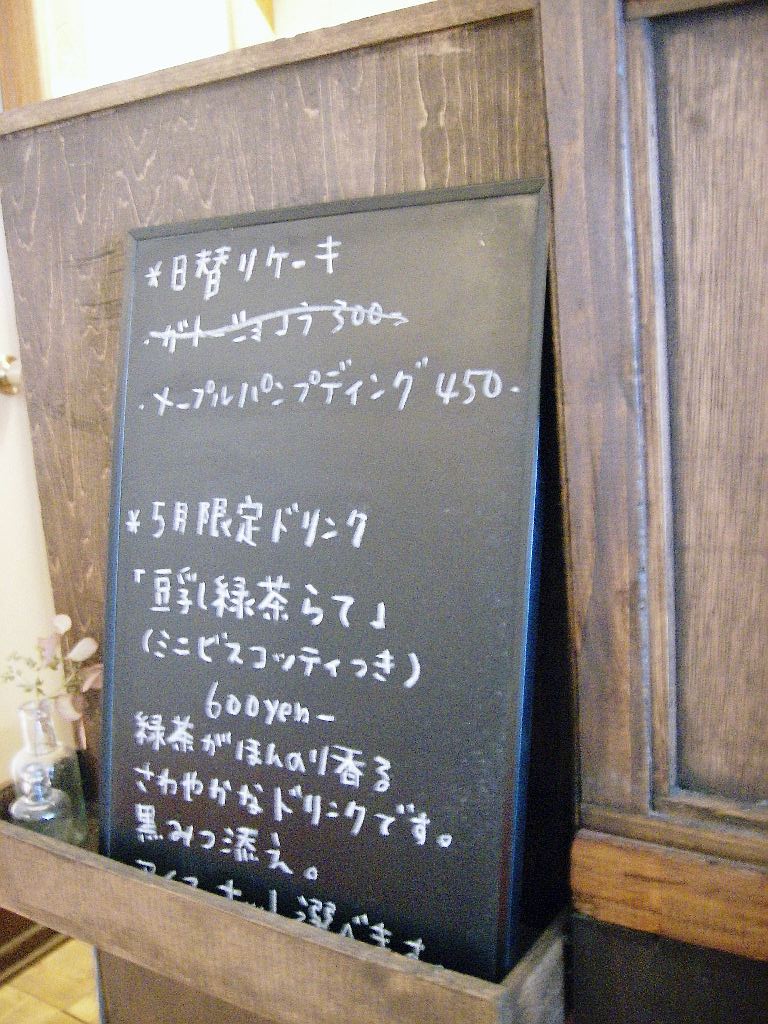 *日替りケーキ
・ガトーショコラ 500
・メープルパンプディング 450-
*5月限定ドリンク
「豆乳緑茶らて」
(ミニビスコッティつき)
600yen-
緑茶がほんのり香る
さわやかなドリンクです。
黒みつ添え。
アイス・ホット選べます。